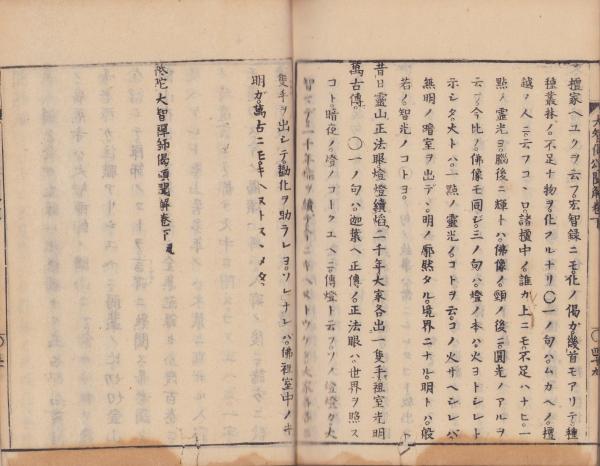 檀家ヘユクヲ云フ宏智録ニモ化ノ偈カ幾首モアリテ種
種叢林ノ不足ナ物ヲ化フルナリ〇一ノ句ハムカヘノ檀
越ノ人ニ云フコヽロ諸檀中ノ誰カ上ニモ不足ハナヒ一
點ノ靈光ヲ腦後ニ輝トハ佛像ノ頸ノ後ニ圓光ノアルヲ
云フ今比ノ佛像モ同ジ三ノ句ハ燈ノ本ハ火ヲトシレト
示シタ大トハ一點ノ靈光ノコトヲ云コノ火サヘシレバ
無明ノ暗室ヲ出デヽ明ノ廓然タル境界ニナル明トハ般
若ノ智光ノコトヨ
昔日靈山正法眼燈燈續焰二千年大家各出一隻手祖室光明
萬古傳 〇一ノ句ハ迦葉ヘ正傳ノ正法眼ハ世界ヲ照ス
コト暗夜ノ燈ノコトクユヘニ傳燈ト云フソノ燈カ
隻手ヲ出シテ勸化ヲ助ラレヨソレナレバ佛祖室中ノ
明カ萬古ニモキヘヌトスヽメタ
大智禪師偈頌聞解卷下